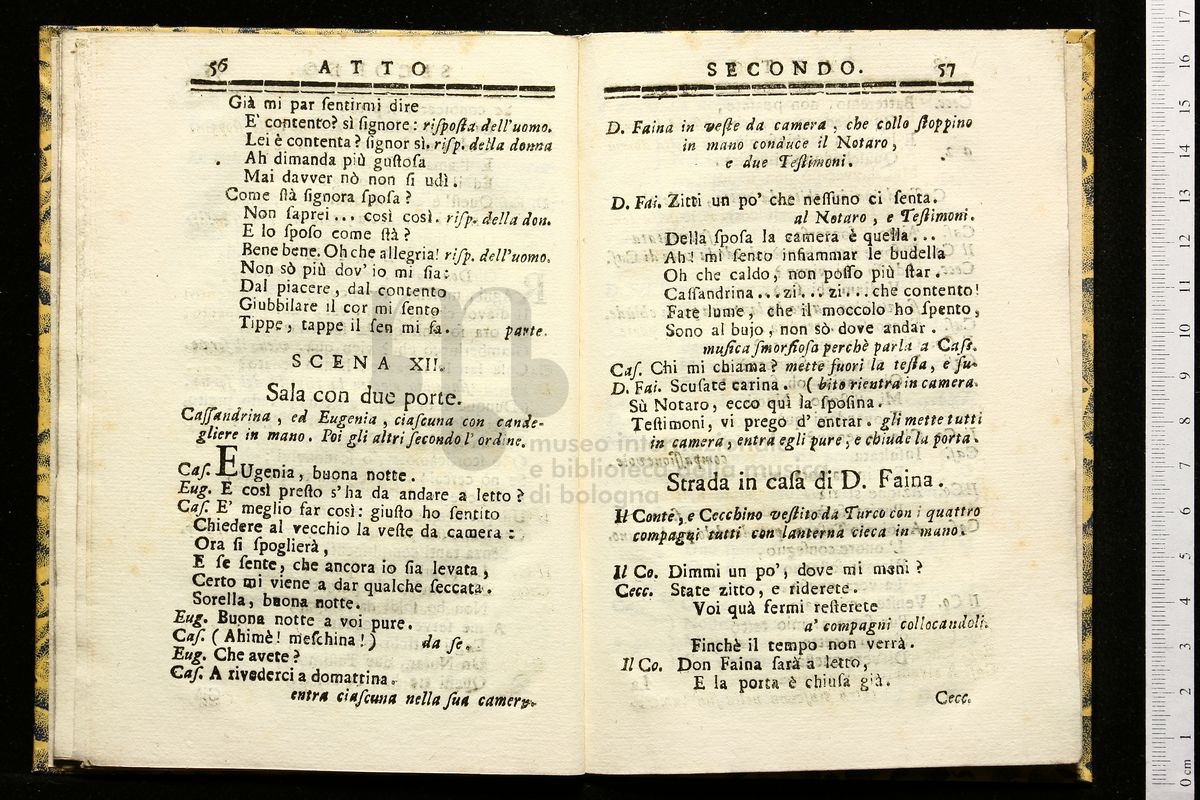 56 ATTO
Già mi par ſentirmi dire
E' contento? sì ſignore: riſpoſta dell'uomo.
Lei è contenta? ſignor sì. riſp. della donna
Ah dimanda più guſtoſa
Mai davver nò non ſi udì.
Come ſtà ſignora ſpoſa?
Non ſaprei... così così. riſp. della don.
E lo ſpoſo come ſtà?
Bene bene. Oh che allegria! riſp. dell'uomo.
Non sò più dov' io mi ſia:
Dal piacere, dal contento
Giubbilare il cor mi ſento
Tippe, tappe il ſen mi fa. parte.
SCENA XII.
Sala con due porte.
Caſſandrina, ed Eugenia, ciaſcuna con cande-
gliere in mano. Poi gli altri ſecondo l'ordine.
Caſ. EUgenia, buona notte.
Eug. E così preſto s'ha da andare a letto?
Caſ. E' meglio far così: giuſto ho ſentito
Chiedere al vecchio la veſte da camera:
Ora ſi ſpoglierà,
E ſe ſente, che ancora io ſia levata,
Certo mi viene a dar qualche ſeccata.
Sorella, buona notte.
Eug. Buona notte a voi pure.
Caſ. (Ahimè! meſchina!) da ſe.
Eug. Che avete?
Caſ. A rivederci a domattina.
entra ciaſcuna nella ſua camera.
SECONDO. 57
D. Faina in veſte da camera, che collo ſtoppino
in mano conduce il Notaro,
e due Teſtimoni.
D. Fai. Zitti un po' che neſſuno ci ſenta.
al Notaro, e Teſtimoni.
Della ſpoſa la camera è quella...
Ah! mi ſento infiammar le budella
Oh che caldo, non poſſo più ſtar.
Caſſandrina...zi...zi...che contento!
Fate lume, che il moccolo ho ſpento,
Sono al bujo, non sò dove andar.
muſica ſmorfioſa perchè parla a Caſſ.
Caſ. Chi mi chiama? mette fuori la teſta, e ſu-
D. Fai. Scuſate carina. (bito rientra in camera.
Sù Notaro, ecco quì la ſpoſina.
Teſtimoni, vi prego d' entrar. gli mette tutti
in camera, entra egli pure, e chiude la porta.
Strada in caſa di D. Faina.
Il Conte, e Cecchino veſtito da Turco con i quattro
compagni tutti con lanterna cieca in mano.
Il Co. Dimmi un po', dove mi meni?
Cecc. State zitto, e riderete.
Voi quà fermi reſterete
a' compagni collocandoli.
Finchè il tempo non verrà.
Il Co. Don Faina ſarà a letto,
E la porta è chiuſa già.
Cecc.
museo internazionale
e biblioteca della musica
di bologna
0 cm 1 2 3 4 5 6 7 8 9 10 11 12 13 14 15 16 17